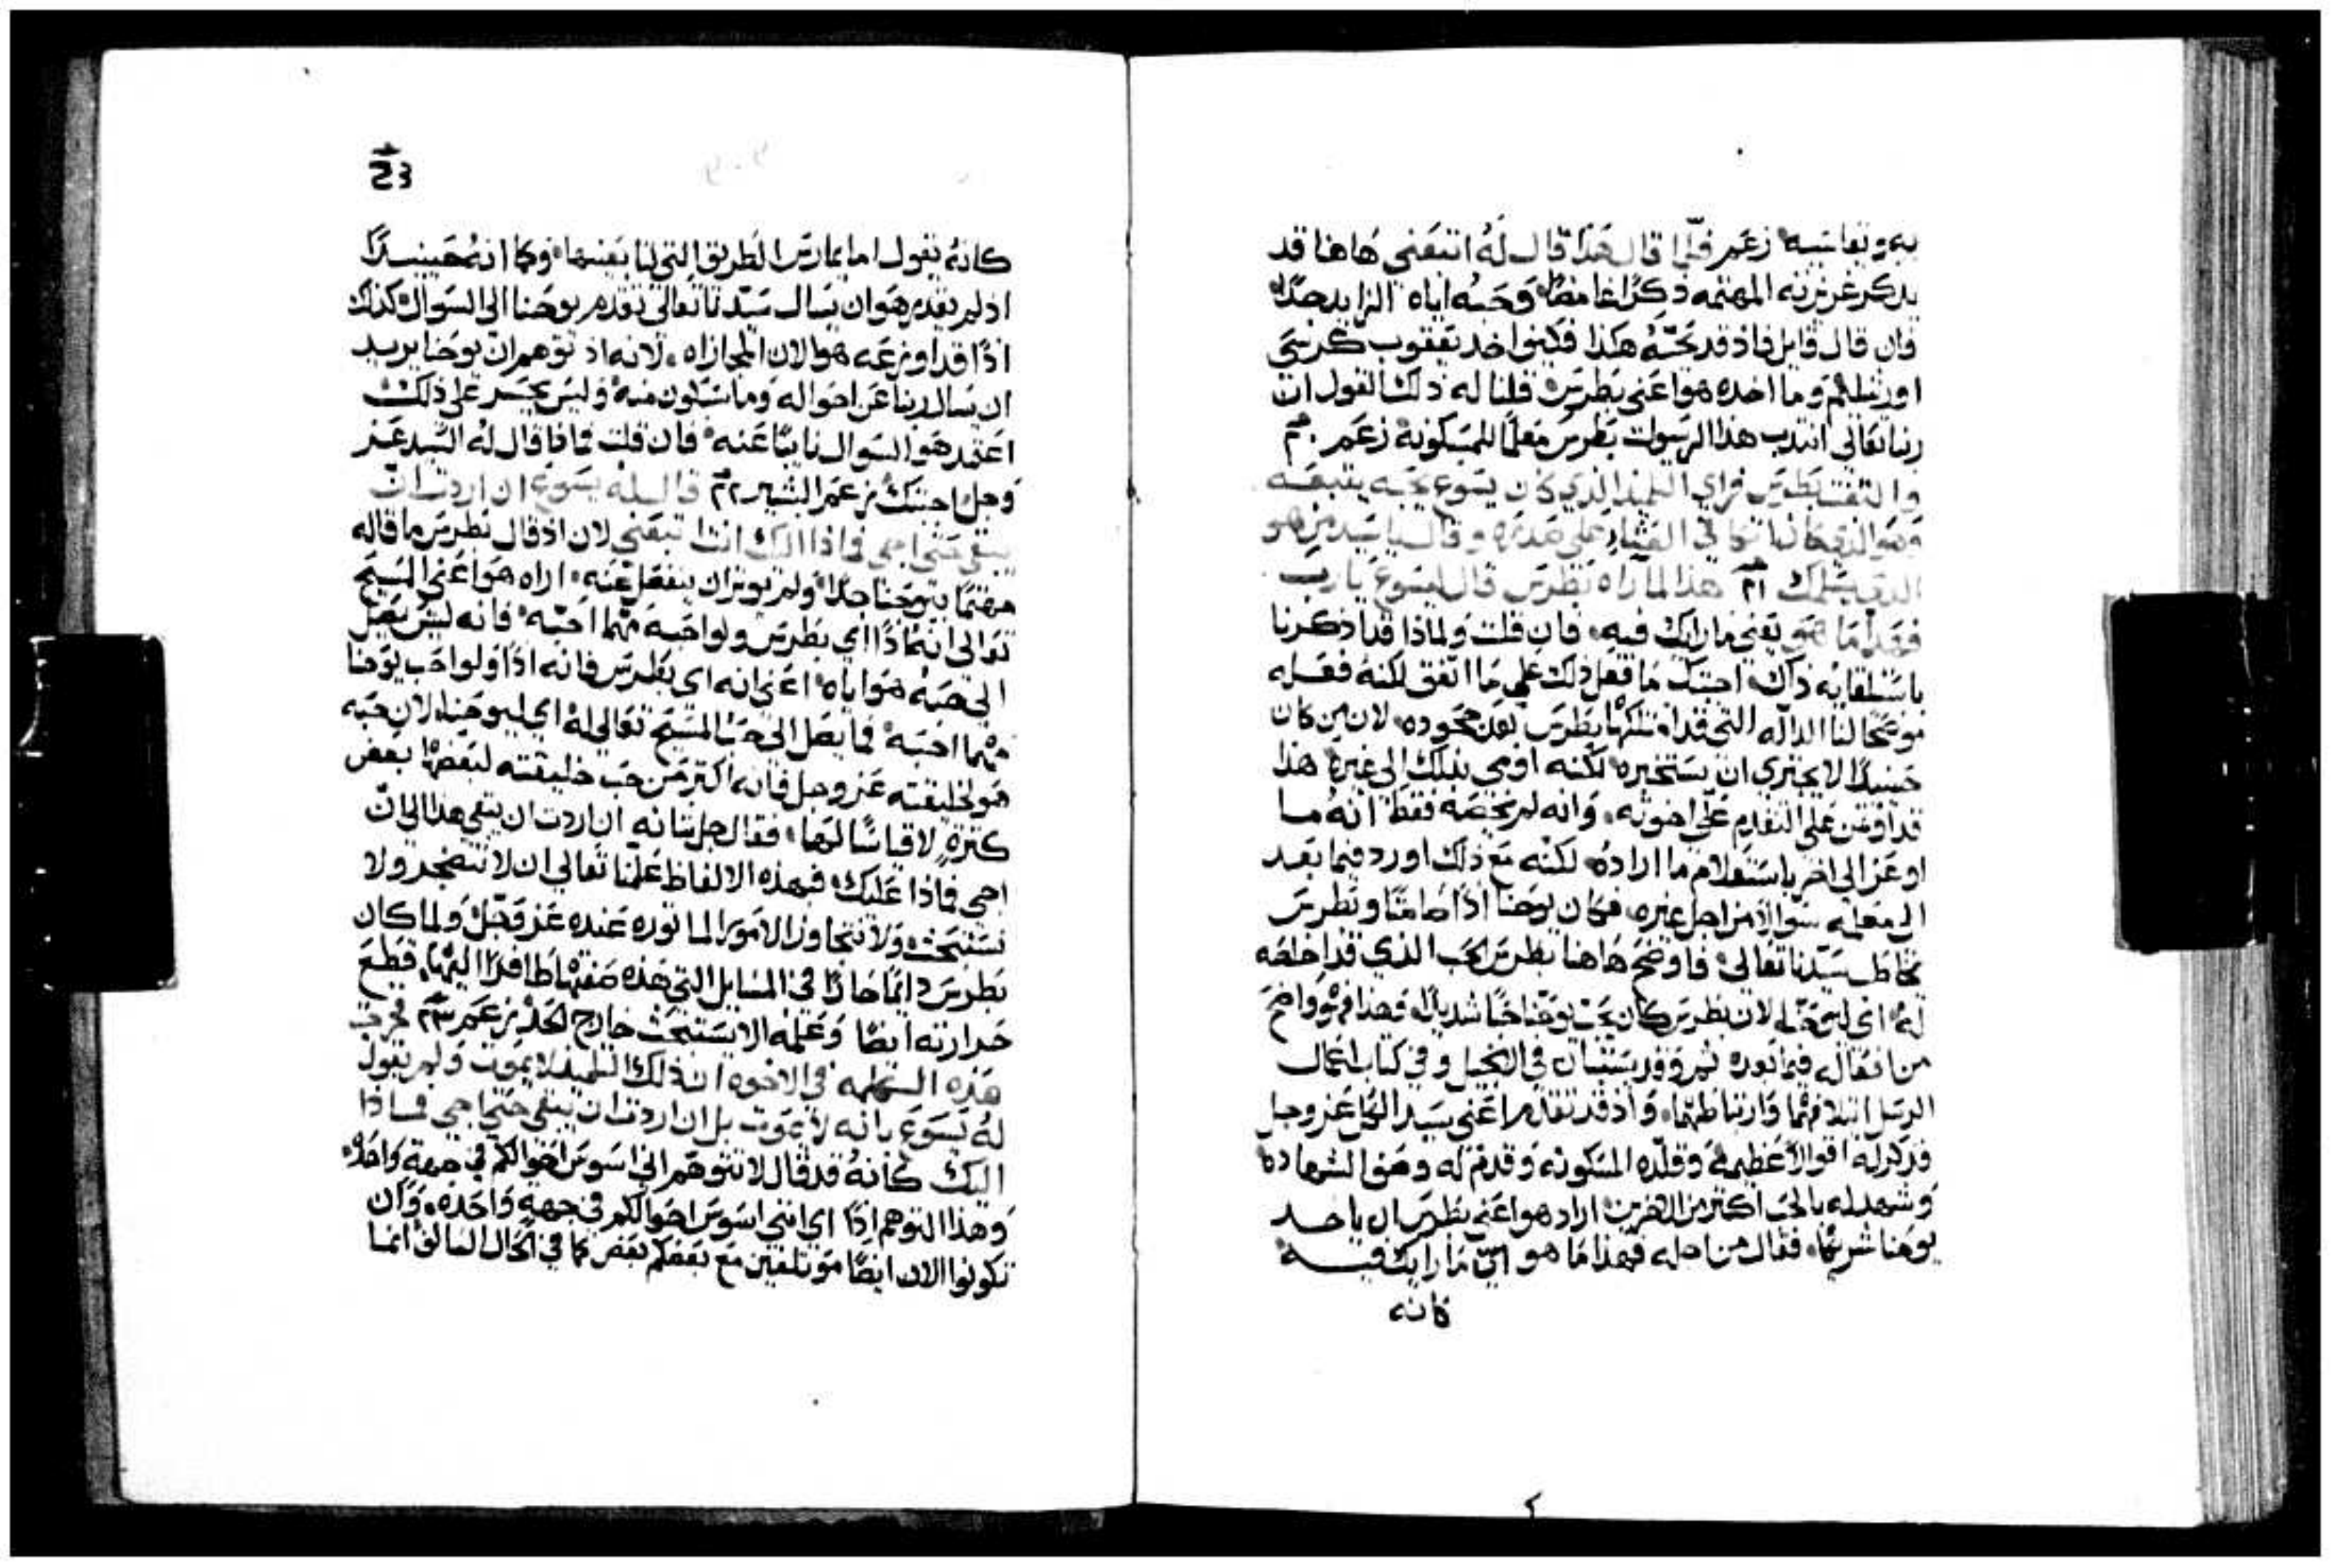 به وتعاسيه زعم فلما قال هذا قال له اتبعني هاهنا قد
يذكر غريزته المهتمه ذكرًا غامضًا وحبه اياه الزايد جدًا
فان قال قايل فاذ قد تحبه هكذا فكيف اخد يعقوب كرسي
اورشليم وما اخده هو اعني بطرس قلنا له ذلك القول ان
ربنا تعالى انتدب هذا الرسول بطرس معلمًا للمسكونه زعم
والتفت بطرس فراي التلميذ الذي كان يسوع يحبه يتبعه
وهو الذي كان اتكا في العشا علي صدره وقال يا سيد من هو
الذي يسلمك هذا لما راه بطرس قال ليسوع يارب
فهذا ما هو يعني ما رايك فيه فان قلت ولماذا قد اذكرنا
باستلقايه ذاك اجبتك ما فعل ذلك علي ما اتفق لكنه فعله
موضحًا لنا الداله التي قد امتلكها بطرس بعد جحوده لان من كان
حينيذ لا يجتري ان يستخبره لكنه اومي بذلك الي غيره هذا
قد اوتمن علي التقدم علي اخوته وانه لم يخصه فقط انه ما
اوعز الي اخر باستعلام ما اراده لكنه مع ذلك اورد فيما بعد
الي معلمه سوالًا من اجل غيره فكان يوحنا اذًا صامتًا وبطرس
يخاطب سيدنا تعالي فاوضح هاهنا بطرس الحب الذي قد اخلصه
له اي ليوحنا لان بطرس كان يحب يوحنا حبًا شديدًا وهذا فهو واضح
من افعاله فيما بعده ثم وقد يستبان في الانجيل وفي كتاب اعمال
الرسل ايتلافهما وارتباطهما واذ قد تقدم اعني سيد الكل عز وجل
فذكر له اقوالًا عظيمه وقلده المسكونه وقدم له وصف الشهاده
وشهد له بالحب اكثر من الاخرين اراد هو اعني بطرس ان ياخد
يوحنا شريكًا فقال من اجله فهذا ما هو اي ما رايك فيه
كانه
كانه يقول اما يمارس الطريق التي لنا بعينها وكما انه حينيذ
اذ لم يقدر هو ان يسال سيدنا تعالى تقدم يوحنا الي السوال كذلك
اذًا قد اوزعه هو الان المجازاه لانه اذ توهم ان يوحنا يريد
ان يسال ربنا عن احواله وما سيكون منه وليس يجسر علي ذلك
اعتمد هو السوال نايبًا عنه فان قلت فماذا قال له السيد عز
وجل اجبتك زعم البشير قال له يسوع ان اردت ان
يبقي حتي اجي فماذا اليك انت اتبعني لان اذ قال بطرس ما قاله
مهتمًا بيوحنا جدًا ولم يوثر ان ينفصل عنه اراه هو اعني المسيح
تعالي انه اذًا اي بطرس ولو احبه مهما احبه فانه ليس يصل
الي حبه هو اياه اعني انه اي بطرس فانه اذًا ولو احب يوحنا
مهما احبه فما يصل الي حب المسيح تعالي له اي ليوحنا لان حبه
هو لخليقته عز وجل فانه اكثر من حب خليقته لبعضها بعض
كثرهٍ لا قياسًا لها فقال جل شانه ان اردت ان يبقي هذا الي ان
اجي فماذا عليك فبهذه الالفاظ علمنا تعالي ان لا نتضجر ولا
نستبحث ولا نتجاوز الامور الماثوره عنده عز وجل ولما كان
بطرس دايمًا حارًا في المسايل التي هذه صفتها طافرًا اليها قطع
حرارته ايضًا وعلمه الا يستبحث خارج الحد زعم فخرجت
هذه الكلمه في الاخوه ان ذلك التلميذ لا يموت ولم يقول
له يسوع بانه لا يموت بل ان اردت ان يبقي حتي اجي فماذا
اليك كانه قد قال لا تتوهم اني اسوس احوالكم في جهة واحده
وهذا التوهم اذًا اي انني اسوس احوالكم في جهة واحده وان
تكونوا الان ايضًا موتلفين مع بعضكم بعض كما في الحال السالف انما